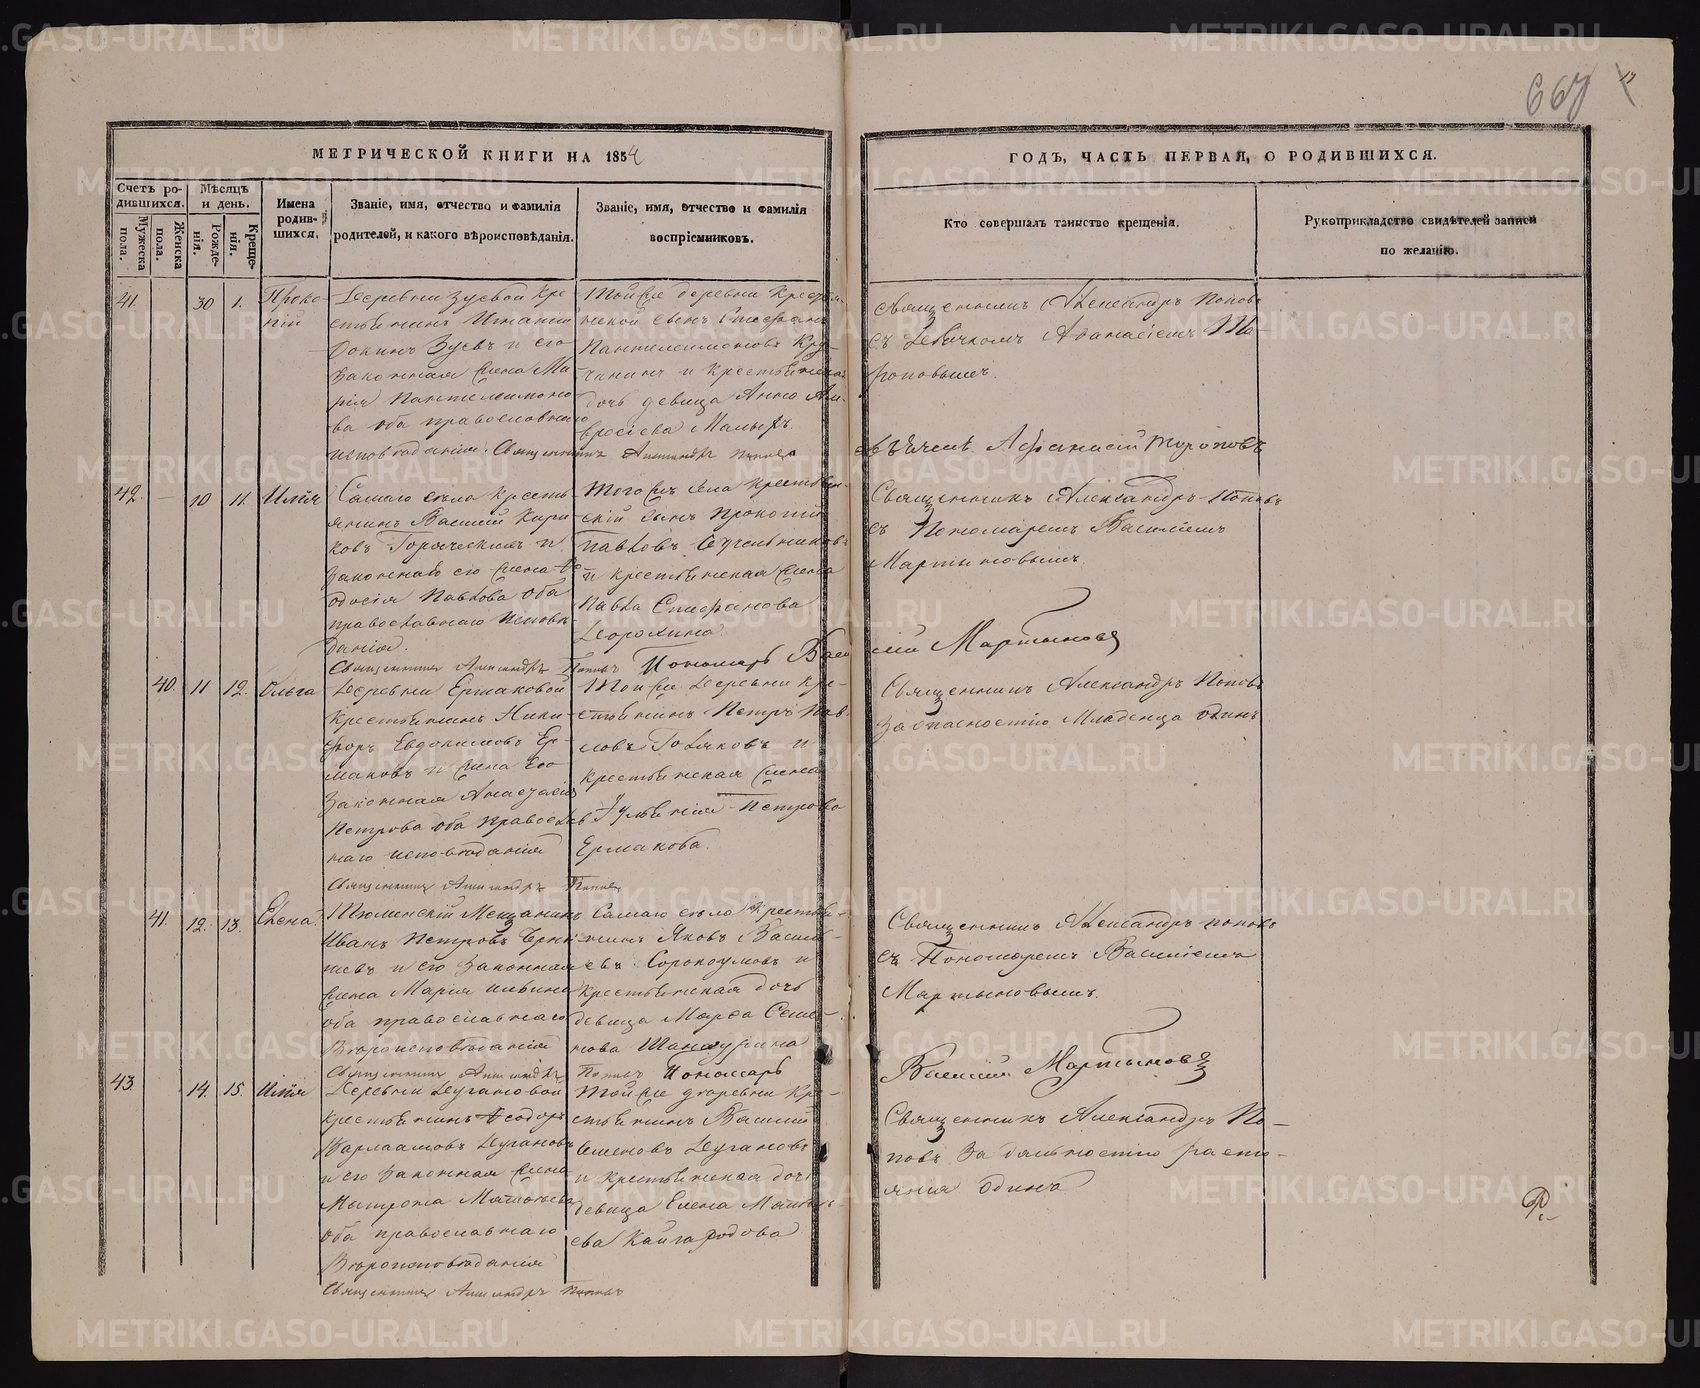 667
МЕТРИЧЕСКОЙ КНИГИ НА 1854
ГОДЪ, ЧАСТЬ ПЕРВАЯ, О РОДИВШИХСЯ.
Счетъ родившихся.
Мужеска пола.
Женска пола.
Мѣсяцъ и день.
Рожденія.
Крещенія.
Имена родившихся.
Званіе, имя, отчество и фамилія
родителей, и какого вѣроисповѣданія.
Званіе, имя, отчество и фамилія
воспріемниковъ.
Кто совершалъ таинство крещенія.
Рукоприкладство свидѣтелей записи
по желанію.
41. 30 1. Проко-
пій
Деревни Зуевой кре
стьянинъ Игнатій
Фокинъ Зуевъ и его
законная жена Ма
рія Пантелеимоно
ва оба православнаго
исповѣданія. Священникъ Александръ Поповъ
Той же деревни крестьян
ской сынъ Стефанъ
Пантелеимоновъ
и крестьянская
дочь девица Анна Ам-
вросіева Малыхъ.
Священникъ Александръ Поповъ
съ Дьячкомъ Афанасіемъ То-
роповымъ.
Дьячекъ Афанасій Тороповъ
42. — 10 11. Илія
Самаго села кресть
янинъ Василій Кири
ковъ и
законная его жена Ѳе
одосія Павлова оба
православнаго исповѣ
данія.
Священникъ Александръ Поповъ
Того же села крестьян-
скій сынъ Прокопій
Павловъ
и крестьянская жена
Павла Епифанова
Дорохина.
Пономарь Васи
лій Мартыновъ
Священникъ Александръ Поповъ
съ Пономаремъ Василіемъ
Мартыновымъ.
40. 11 12. Ольга
Деревни Ермаковой
крестьянинъ Ники-
форъ Евдокимовъ Ер-
маковъ и жена его
законная Анастасія
Петрова оба православ
наго исповѣданія
Священникъ Александръ Поповъ
Той же деревни кре-
стьянинъ Петръ Пав
ловъ и
крестьянская жена
Іуліанія Петрова
Ермакова.
Священникъ Александръ Поповъ
за опасностію младенца одинъ
41. 12. 13. Елена.
Тюменскій Мещанинъ
Иванъ Петровъ
и его законная
жена Марія Ильина
оба православнаго
вѣроисповѣданія
Священникъ Александръ Поповъ
Самаго села крестья-
нинъ Яковъ Василь-
евъ Сорокоумовъ и
крестьянская дочь
девица Марѳа Семе-
нова
Пономарь
Василій Мартыновъ
Священникъ Александръ Поповъ
съ Пономаремъ Василіемъ
Мартыновымъ.
43. 14. 15. Илія
Деревни Дугановой
крестьянинъ Ѳеодоръ
Варлаамовъ Дугановъ
и его законная жена
Матрона Матвѣева
оба православнаго
вѣроисповѣданія
Священникъ Александръ Поповъ
Той же деревни кре-
стьянинъ Василій
Семеновъ Дугановъ
и крестьянская дочь
девица Елена Матвѣ-
ева Кайгародова
Священникъ Александръ По-
повъ за дальностію разсто-
янія одинъ
METRIKI.GASO-URAL.RU